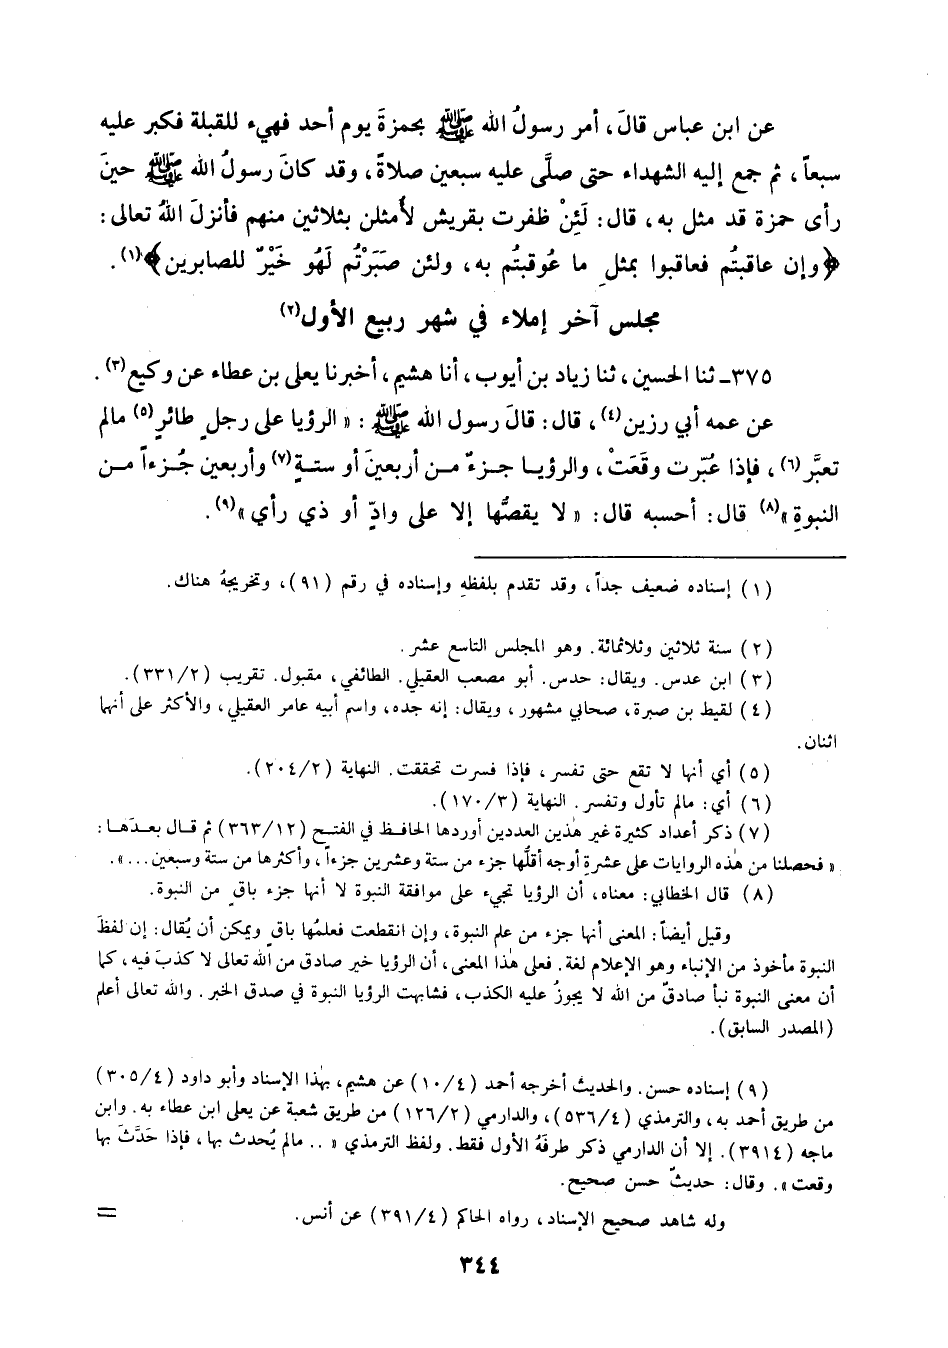 عن ابن عباس قالَ، أمر رسولُ الله ﷺ بحمزةَ يوم أحد فهيء للقبلة فكبر عليه
سبعاً، ثم جمع إليه الشهداء حتى صلَّى عليه سبعين صلاةً، وقد كانَ رسولُ الله ﷺ حينَ
رأى حمزة قد مثل به، قال: لَئِنْ ظفرت بقريش لأمثلن بثلاثين منهم فأنزلَ اللهُ تعالى:
﴿وإن عاقبتُم فعاقبوا بمثلِ ما عُوقبتُم به، ولئن صَبَرْتُم لَهُو خَيْرٌ للصابرين﴾(١).
مجلس آخر إملاء في شهر ربيع الأول(٢)
٣٧٥ـ ثنا الحسين، ثنا زياد بن أيوب، أنا هشيم، أخبرنا يعلى بن عطاء عن وكيع(٣).
عن عمه أبي رزين(٤)، قال: قالَ رسول الله ﷺ: «الرؤيا على رجلٍ طائرٍ(٥) مالم
تعبَّر(٦)، فإذا عُبّرت وقَعَتْ، والرؤيـا جـزءٌ مـن أربعينَ أو ستـةٍ(٧) وأربعين جُـزءاً مـن
النبوةِ»(٨) قال: أحسبه قال: «لا يقصُّها إلا على وادٍّ أو ذي رأي»(٩).
(١) إسناده ضعيف جداً، وقد تقدم بلفظهِ وإسناده في رقم (٩١)، وتخريجهُ هناك.
(٢) سنة ثلاثين وثلاثمائة. وهو المجلس التاسع عشر.
(٣) ابن عدس. ويقال: حدس. أبو مصعب العقيلي. الطائفي، مقبول. تقريب (٣٣١/٢).
(٤) لقيط بن صبرة، صحابي مشهور، ويقال: إنه جده، واسم أبيه عامر العقيلي، والأكثر على أنهما
اثنان.
(٥) أي أنها لا تقع حتى تفسر، فإذا فسرت تحققت. النهاية (٢٠٤/٢).
(٦) أي: مالم تأول وتفسر. النهاية (١٧٠/٣).
(٧) ذكر أعداد كثيرة غير هٰذين العددين أوردها الحافظ في الفتح (٣٦٣/١٢) ثم قـال بعـدَهـا:
«فحصلنا من هٰذه الروايات على عشرةِ أوجه أقلُّها جزء من ستة وعشرين جزءاً، وأكثرها من ستة وسبعين...».
(٨) قال الخطابي: معناه، أن الرؤيا تجيء على موافقة النبوة لا أنها جزء باقٍ من النبوة.
وقيل أيضاً: المعنى أنها جزء من علم النبوة، وإن انقطعت فعلمُها باقٍ ويمكن أن يُقال: إن لفظَ
النبوة مأخوذ من الإنباء وهو الإعلام لغة. فعلى هٰذا المعنى، أن الرؤيا خبر صادق من الله تعالى لا كذبَ فيه، كما
أن معنى النبوة نبأ صادقٌ من الله لا يجوزُ عليه الكذب، فشابهت الرؤيا النبوة في صدق الخبر. والله تعالى أعلم
(المصدر السابق).
(٩) إسناده حسن. والحديث أخرجه أحمد (١٠/٤) عن هشيم، بهٰذا الإسناد وأبو داود (٣٠٥/٤)
من طريق أحمد به، والترمذي (٥٣٦/٤)، والدارمي (١٢٦/٢) من طريق شعبة عن يعلى ابن عطاء به. وابن
ماجه (٣٩١٤). إلا أن الدارمي ذكر طرفَهُ الأول فقط. ولفظ الترمذي «.. مالم يُحدث بها، فإذا حَدَّثَ بها
وقعت». وقال: حديثٌ حسن صحيح.
وله شاهد صحيح الإسناد، رواه الحاكم (٣٩١/٤) عن أنس. =
٣٤٤